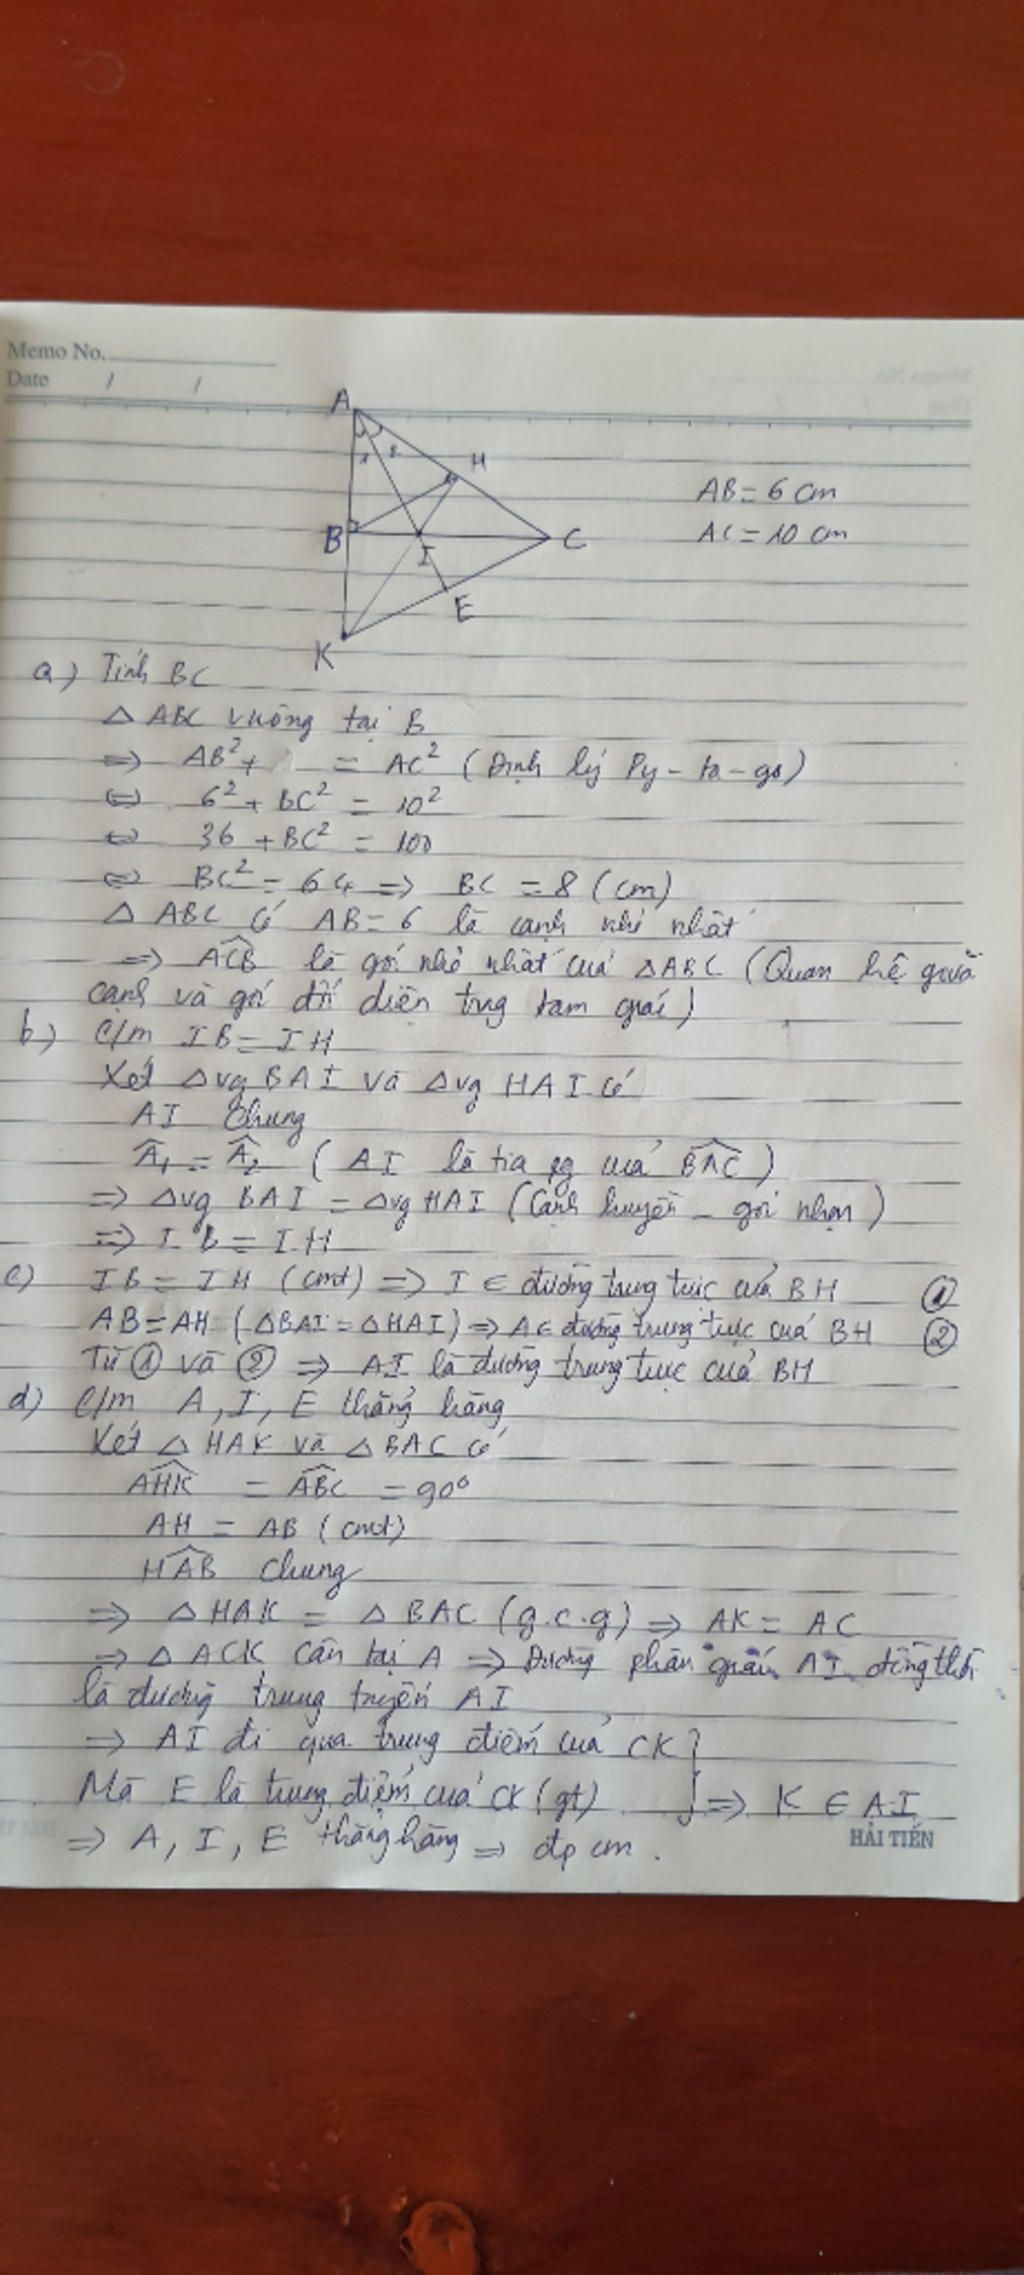 Memo No.
Date / /
A
1 2
H
B
C
I
E
K
AB = 6 cm
AC = 10 cm
a) Tính BC
△ ABC vuông tại B
=> AB² + = AC² (Định lý Py-ta-go)
<=> 6² + BC² = 10²
<=> 36 + BC² = 100
<=> BC² = 64 => BC = 8 (cm)
△ ABC có AB = 6 là cạnh nhỏ nhất
=> ACB là góc nhỏ nhất của △ABC (Quan hệ giữa
cạnh và góc đối diện trong tam giác)
b) C/m IB = IH
Xét △vg BAI và △vg HAI có
AI chung
A₁ = A₂ (AI là tia pg của BAC)
=> △vg BAI = △vg HAI (Cạnh huyền - góc nhọn)
=> IB = IH
c) IB = IH (cmt) => I ∈ đường trung trực của BH ①
AB = AH (△BAI = △HAI) => A ∈ đường trung trực của BH ②
Từ ① và ② => AI là đường trung trực của BH
d) C/m A, I, E thẳng hàng
Xét △ HAK và △ BAC có
AHK = ABC = 90°
AH = AB (cmt)
HAB chung
=> △ HAK = △ BAC (g.c.g) => AK = AC
=> △ ACK cân tại A => Đường phân giác AI đồng thời
là đường trung tuyến AI
=> AI đi qua trung điểm của CK }
Mà E là trung điểm của CK (gt) => K ∈ AI
=> A, I, E thẳng hàng => đpcm.
HẢI TIẾN